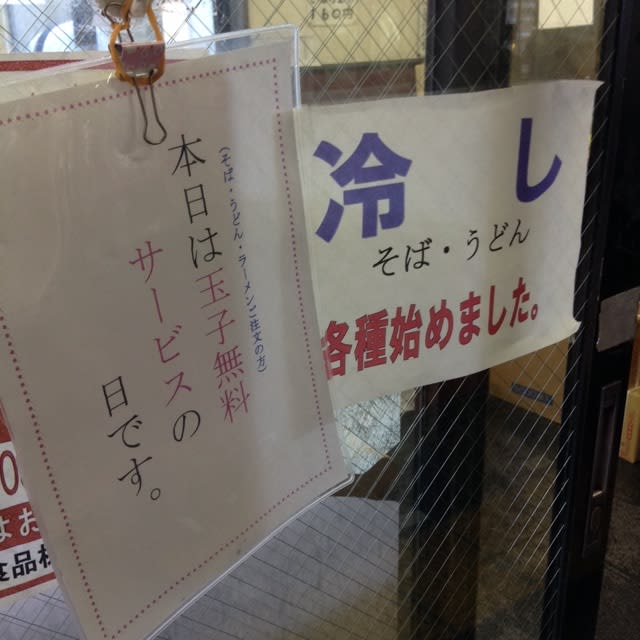 (そば・うどん・ラーメンご注文の方)
本日は玉子無料
サービスの
日です。
冷し
そば・うどん
各種始めました。